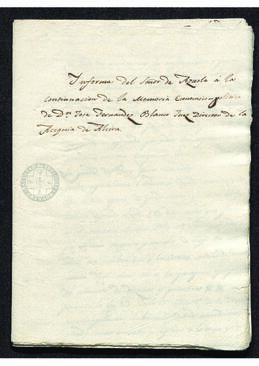 Informe del Señor de Azuela à la
continuacion de la Memoria
de Dn. Jose Fernandez Blanco Juez Director de la
Acequia de Alcira.